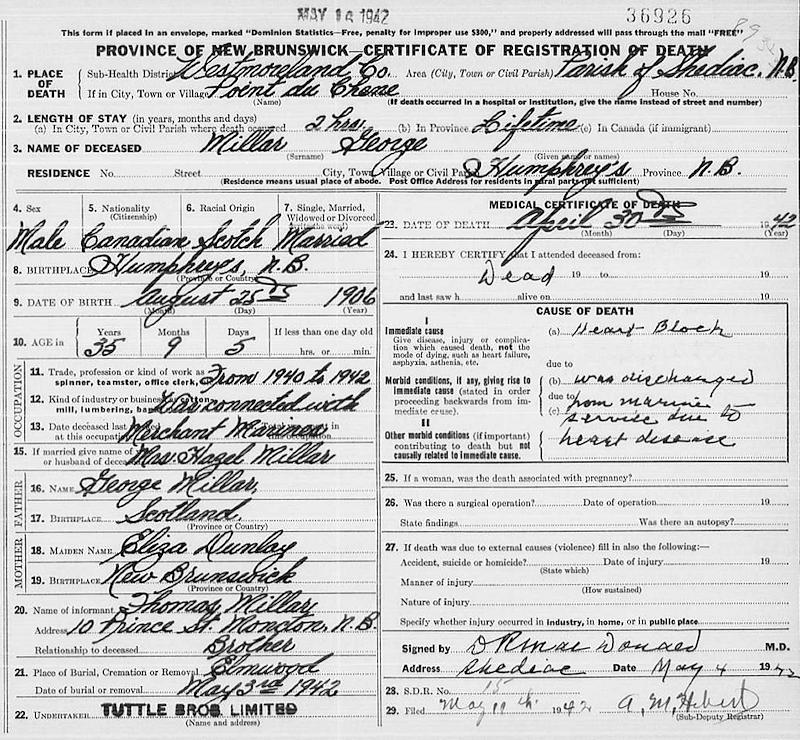 MAY 14 1942
36926
This form if placed in an envelope, marked "Dominion Statistics—Free, penalty for improper use $300," and properly addressed will pass through the mail "FREE"
PROVINCE OF NEW BRUNSWICK—CERTIFICATE OF REGISTRATION OF DEATH
1. PLACE OF DEATH Sub-Health District Westmoreland Co. Area (City, Town or Civil Parish) Parish of Shediac. N.B.
If in City, Town or Village Point du Chene House No.
(Name) (If death occurred in a hospital or institution, give the name instead of street and number)
2. LENGTH OF STAY (in years, months and days)
(a) In City, Town or Civil Parish where death occurred 2 hrs. (b) In Province Lifetime (c) In Canada (if immigrant)
3. NAME OF DECEASED Millar George
(Surname) (Given name or names)
RESIDENCE No. Street City, Town Village or Civil Parish Humphrey's Province N.B.
(Residence means usual place of abode. Post Office Address for residents in rural parts not sufficient)
4. Sex 5. Nationality (Citizenship) 6. Racial Origin 7. Single, Married, Widowed or Divorced
Male Canadian Scotch Married
8. BIRTHPLACE Humphrey's, N.B.
(Province or Country)
9. DATE OF BIRTH August 25 1906
(Month) (Day) (Year)
10. AGE in Years Months Days If less than one day old
35 9 5 hrs. or min.
OCCUPATION
11. Trade, profession or kind of work as spinner, teamster, office clerk, From 1940 to 1942
12. Kind of industry or business as cotton mill, lumbering, Was connected with
13. Date deceased last at this occupation Merchant Marines
15. If married give name of or husband of deceased Mrs. Hazel Millar
FATHER
16. NAME George Millar,
17. BIRTHPLACE Scotland.
(Province or Country)
MOTHER
18. MAIDEN NAME Eliza Dunlay
19. BIRTHPLACE New Brunswick
(Province or Country)
20. Name of informant Thomas Millar
Address 10 Prince St. Moncton, N.B.
Relationship to deceased Brother
21. Place of Burial, Cremation or Removal Elmwood
Date of burial or removal May 3rd 1942
22. UNDERTAKER TUTTLE BROS. LIMITED
(Name and address)
MEDICAL CERTIFICATE OF DEATH
23. DATE OF DEATH April 30 1942
(Month) (Day) (Year)
24. I HEREBY CERTIFY that I attended deceased from:
Dead 19 to 19
and last saw h alive on 19
CAUSE OF DEATH
I
Immediate cause (a) Heart Block
Give disease, injury or complication which caused death, not the mode of dying, such as heart failure, asphyxia, asthenia, etc.
due to
Morbid conditions, if any, giving rise to immediate cause (stated in order proceeding backwards from immediate cause). (b) was discharged
due to from marine
(c) service due to
II
heart disease
Other morbid conditions (if important) contributing to death but not causally related to immediate cause.
25. If a woman, was the death associated with pregnancy?
26. Was there a surgical operation? Date of operation 19
State findings Was there an autopsy?
27. If death was due to external causes (violence) fill in also the following:—
Accident, suicide or homicide? Date of injury 19
(State which)
Manner of injury
(How sustained)
Nature of injury
Specify whether injury occurred in industry, in home, or in public place
Signed by M.D.
Address Shediac Date May 4 1942
28. S.D.R. No. 15
29. Filed May 11th 1942 A. M. Hebert
(Sub-Deputy Registrar)